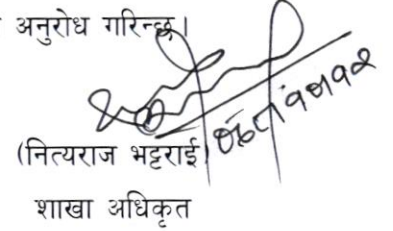 अनुरोध गरिन्छ।
(नित्यराज भट्टराई)
शाखा अधिकृत